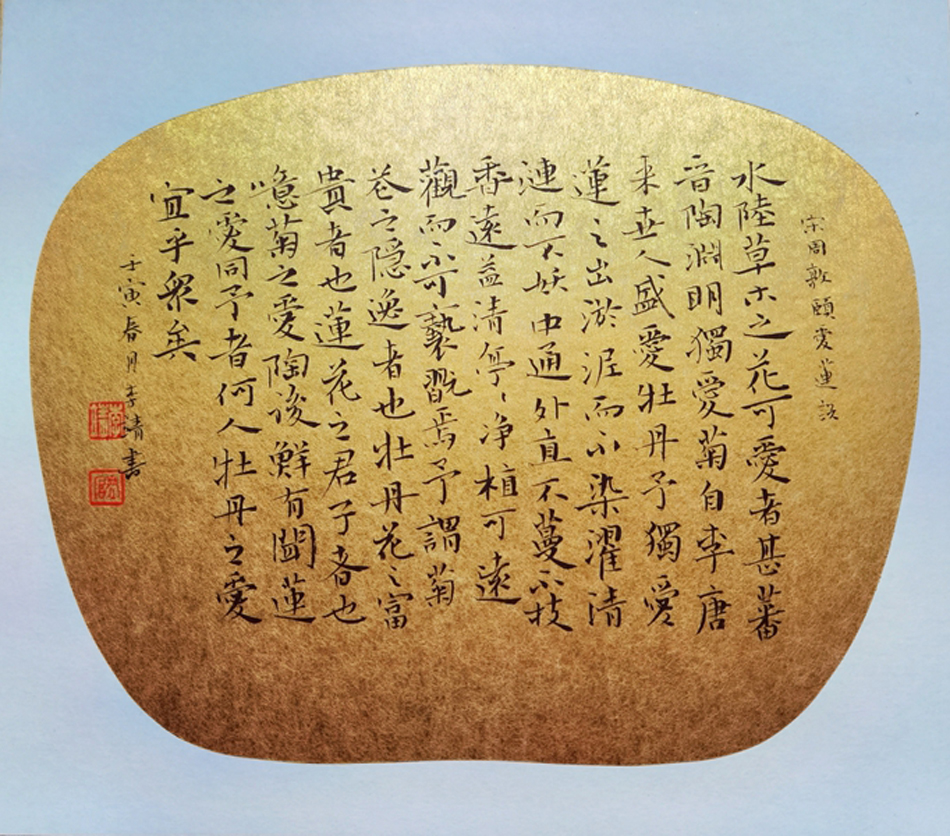 宋周敦頤愛蓮説
水陸草木之花可愛者甚蕃
晉陶淵明獨愛菊自李唐
来世人盛愛牡丹予獨愛
蓮之出淤泥而不染濯清
漣而不妖中通外直不蔓不枝
香遠益清亭〻净植可遠
觀而不可褻翫焉予謂菊
花之隐逸者也牡丹花之富
貴者也蓮花之君子者也
噫菊之愛陶後鮮有聞蓮
之愛同予者何人牡丹之愛
宜乎衆矣
壬寅春月李清書